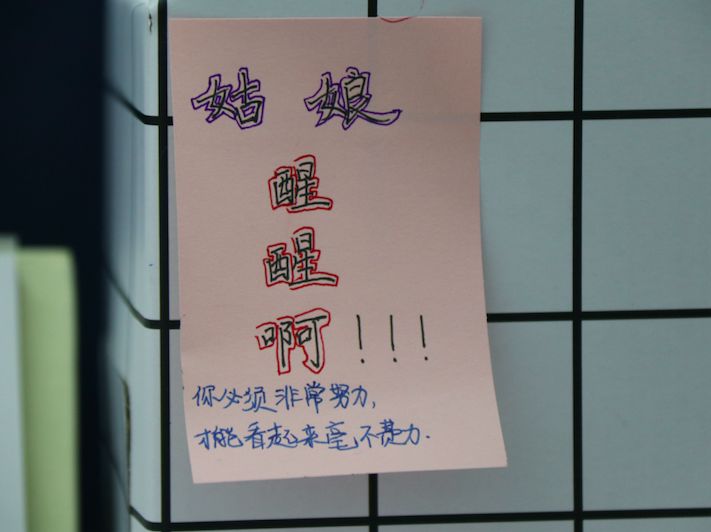 姑娘
醒
醒
啊!!!
你必须非常努力,
才能看起来毫不费力.